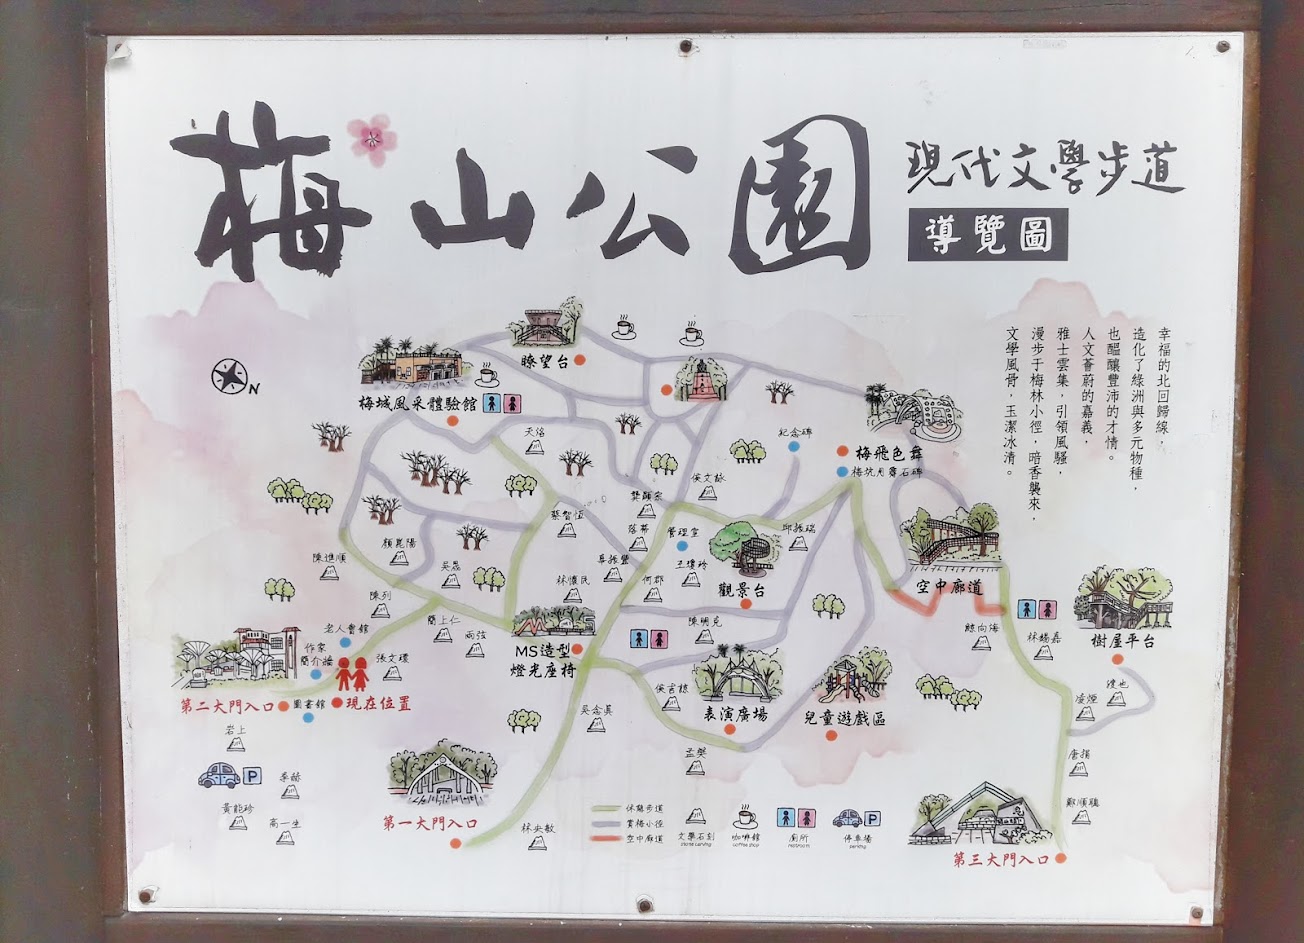 梅山公園
現代文學步道
導覽圖
幸福的北回歸線，
造化了綠洲與多元物種，
也醞釀豐沛的才情。
人文薈蔚的嘉義，
雅士雲集，引領風騷，
漫步于梅林小徑，暗香襲來，
文學風骨，玉潔冰清。
N
瞭望台
梅城風采體驗館
天洛
紀念碑
梅飛色舞
梅坑月霽石碑
侯文詠
樊顯宗
蔡智恆
落蒂
管理室
邱振瑞
顏崑陽
陳進順
吳晟
林懷民
王瓊玲
何郡
觀景台
空中廊道
陳列
簡上仁
老人會館
作家
簡介牆
張文環
兩弦
MS造型
燈光座椅
陳明克
鯨向海
林蟠嘉
樹屋平台
第二大門入口
圖書館
現在位置
侯吉諒
吳念真
表演廣場
兒童遊戲區
渡也
凌煙
岩上
孟樊
唐捐
P
季赫
黃能珍
高一生
第一大門入口
林央敏
鄭順聰
第三大門入口
休憩步道
賞梅小徑
空中廊道
文學石刻
stone carving
咖啡館
coffee shop
廁所
restroom
P
停車場
parking